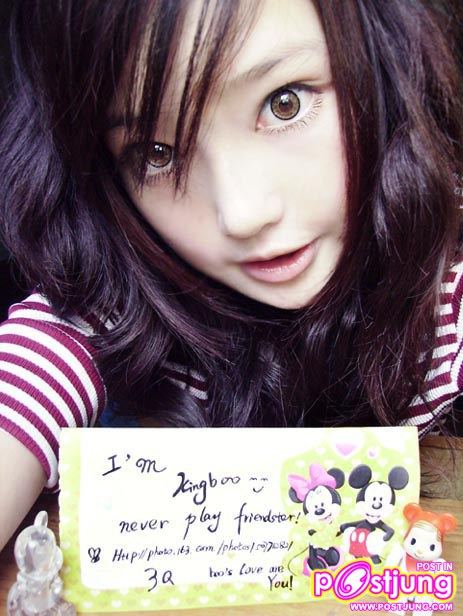 I'm
Kingboo
never play friendster!
Http://photo.163.com/photos/
3Q
boo's love me
You!
POST IN
Postjung
WWW.POSTJUNG.COM